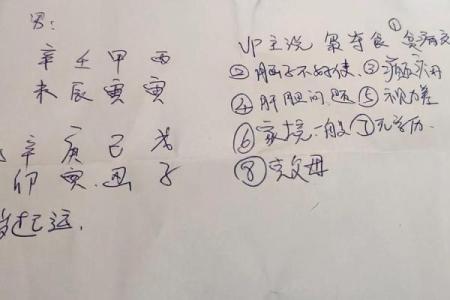 男:
辛 壬 甲 丙
未 辰 寅 寅
辛 庚 己 戊
卯 寅 丑 子
起己运.
VP主说 枭夺食 ①贫病交
②脑子不好使. ③
④肝胆问题 ⑤视力差
⑥家境一般 ⑦无学历.
⑧克父母